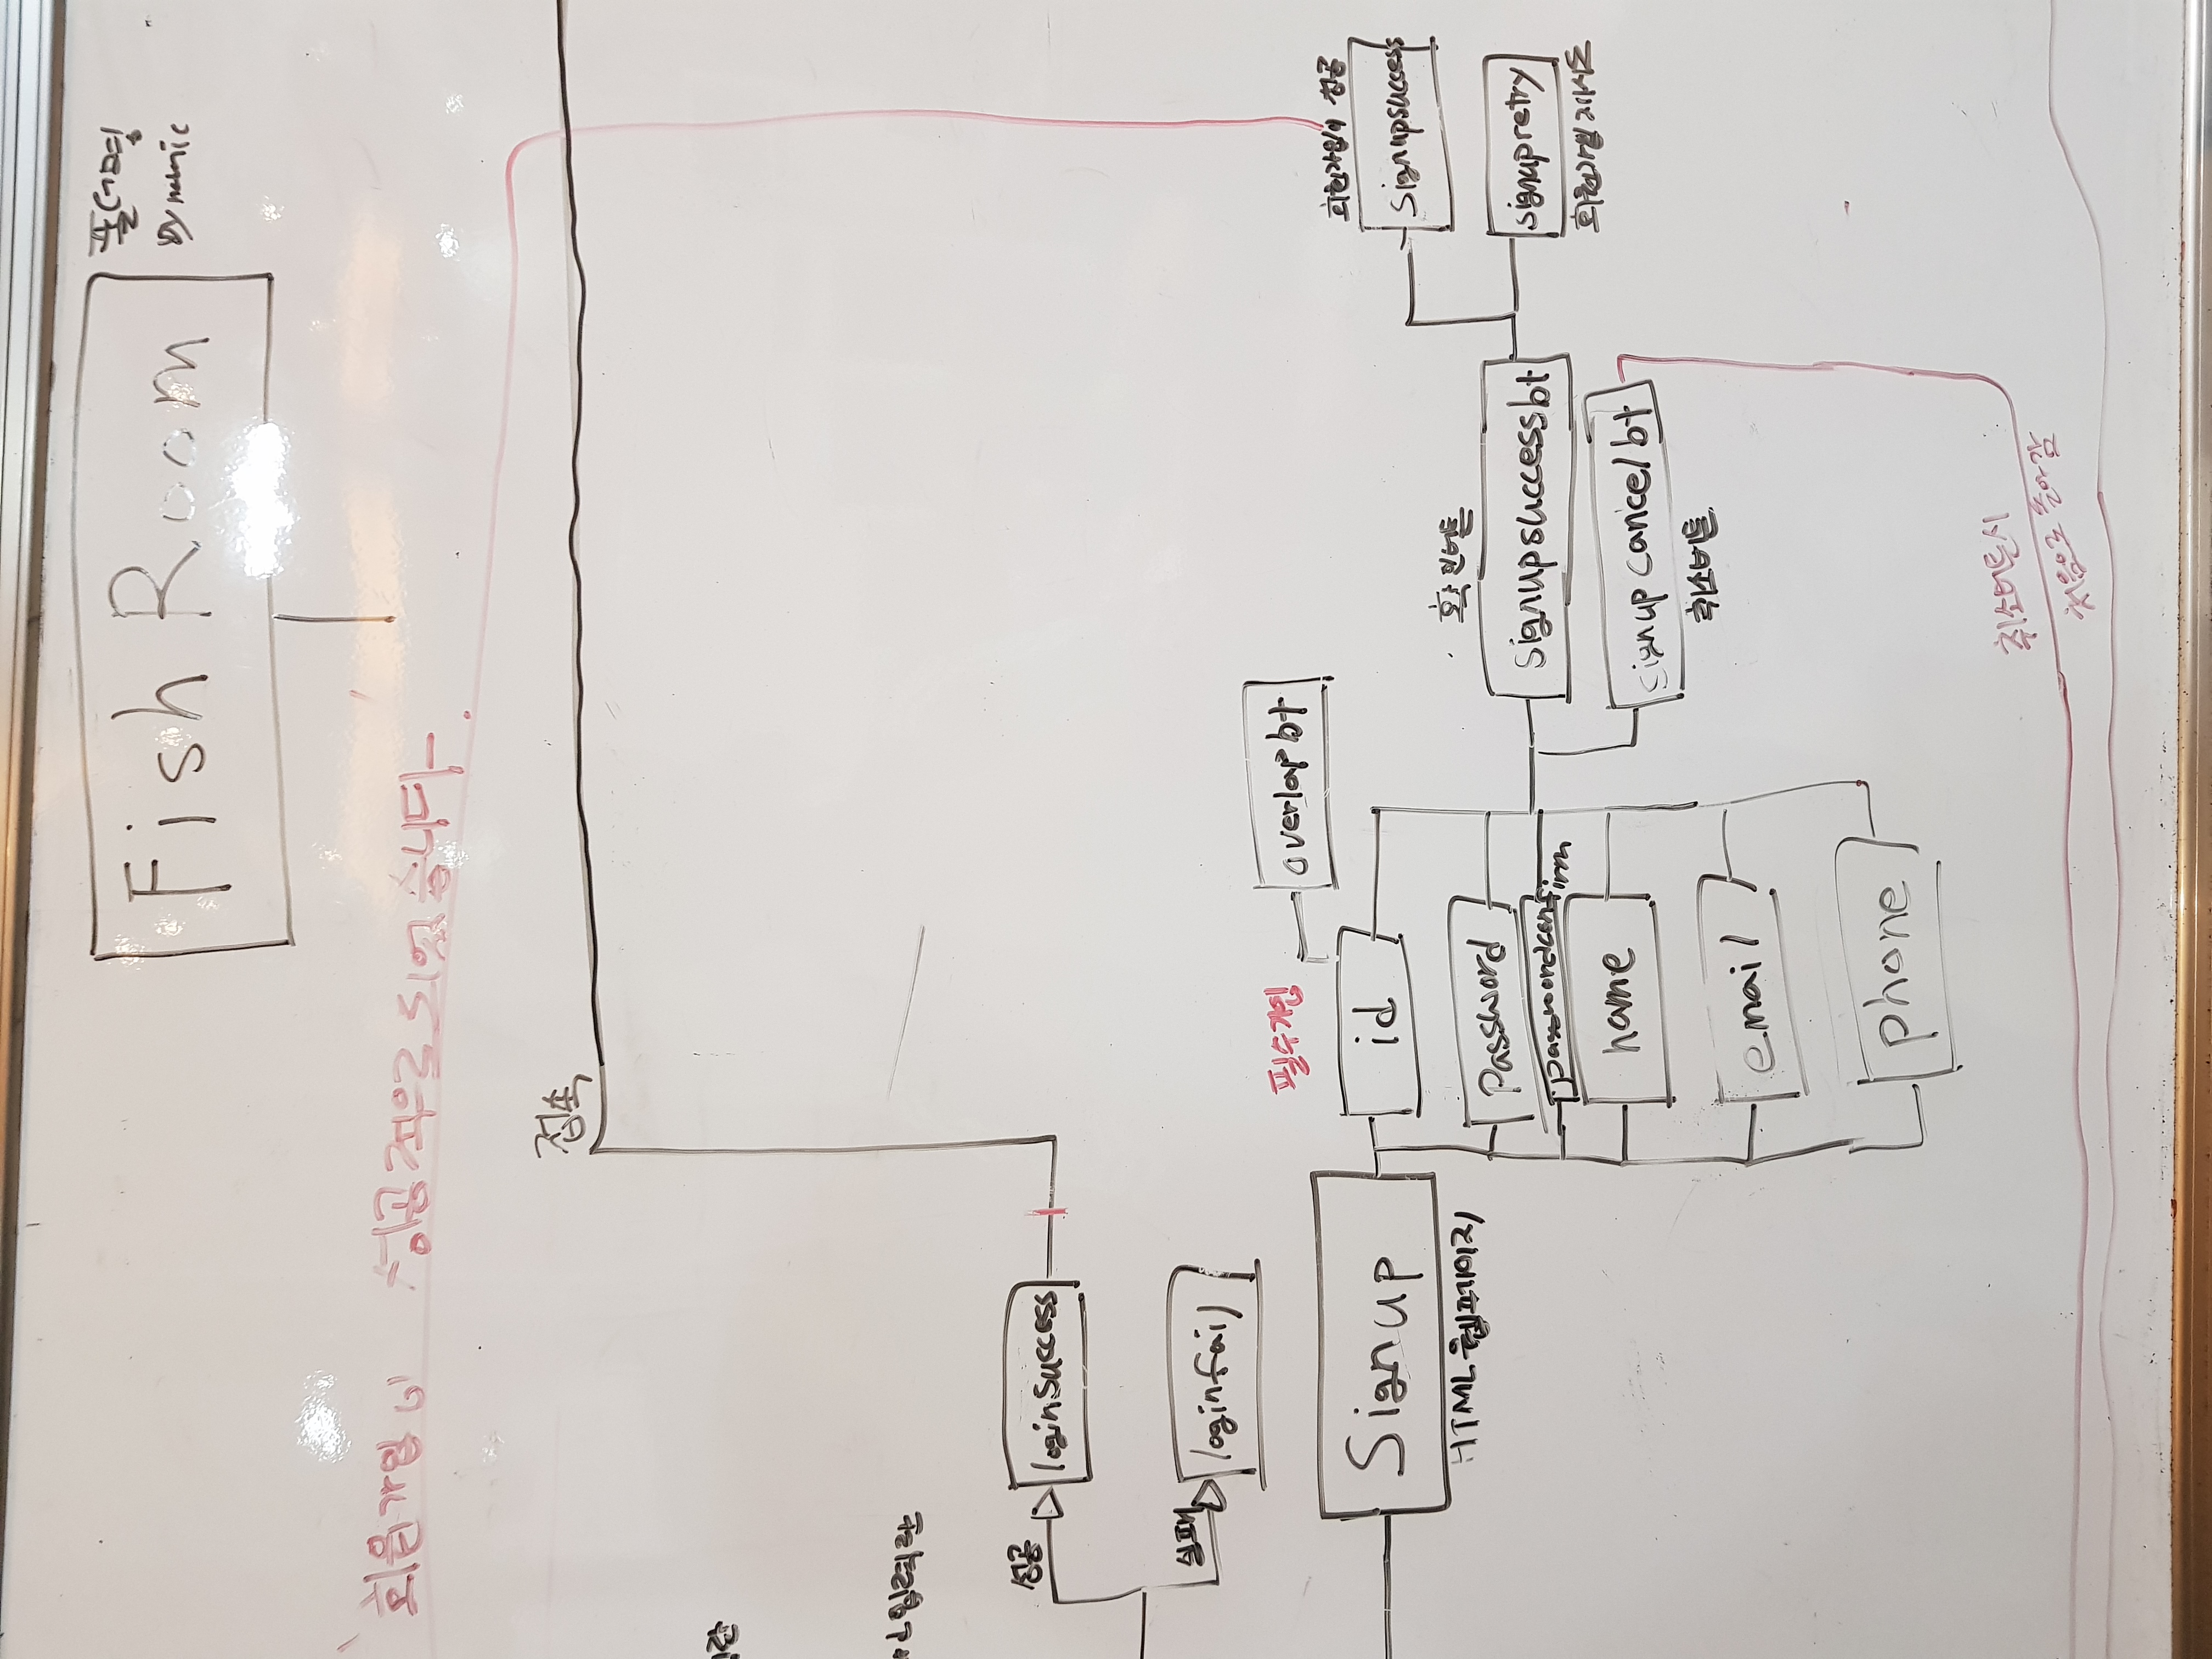 Fish Room
폴더명
Dynamic
회원가입이 성공적으로 되었습니다.
접속
입력란
성공
loginsuccess
실패
loginfail
필수가입
overlap bt
Sign up
HTML 웹페이지
id
Password
passwordconfirm
name
email
phone
확인버튼
signupsuccessbt
signup cancel bt
취소버튼
회원가입이 성공
signupsuccess
signupretry
회원가입 재시도
취소버튼시
처음으로 돌아감